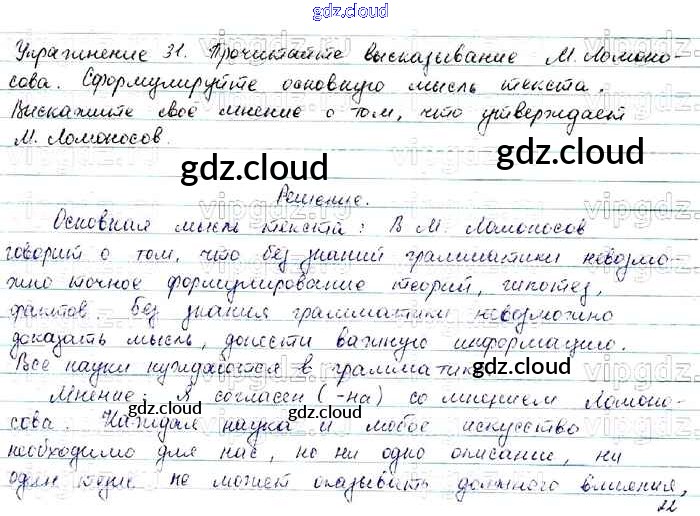 gdz.cloud
Упражнение 31. Прочитайте высказывание М. Ломоно-
сова. Сформулируйте основную мысль текста.
Выскажите своё мнение о том, что утверждает
М. Ломоносов.
gdz.cloud gdz.cloud
Решение.
Основная мысль текста: В М. Ломоносов
говорит о том, что без знаний грамматики невозмо-
жно точное формулирование теорий, гипотез,
фактов. Без знания грамматики невозможно
доказать мысль, донести важную информацию.
Все науки нуждаются в грамматике.
gdz.cloud
Мнение: Я согласен (-на) со мнением Ломоно-
gdz.cloud gdz.cloud
сова. Каждая наука и любое искусство
необходимо для нас, но ни одно описание, ни
один не может оказывать должного влияния,
22